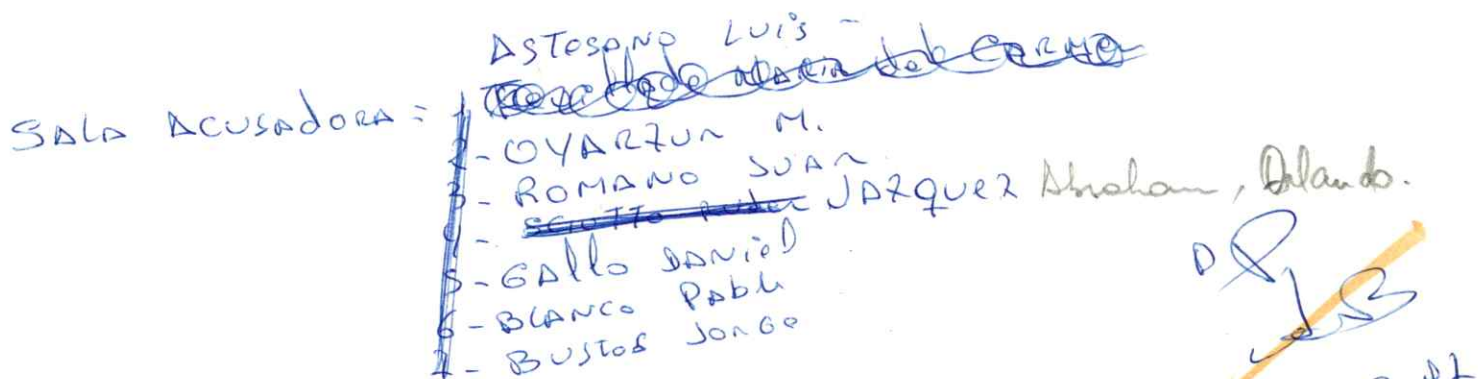 ASTESANO LUIS -
SALA ACUSADORA = 1
2- OYARZUN M.
3- ROMANO JUAN
4- JAZQUEZ Abraham, Orlando.
5- GALLO DANIEL
6- BLANCO Pablo
7- BUSTOS JORGE